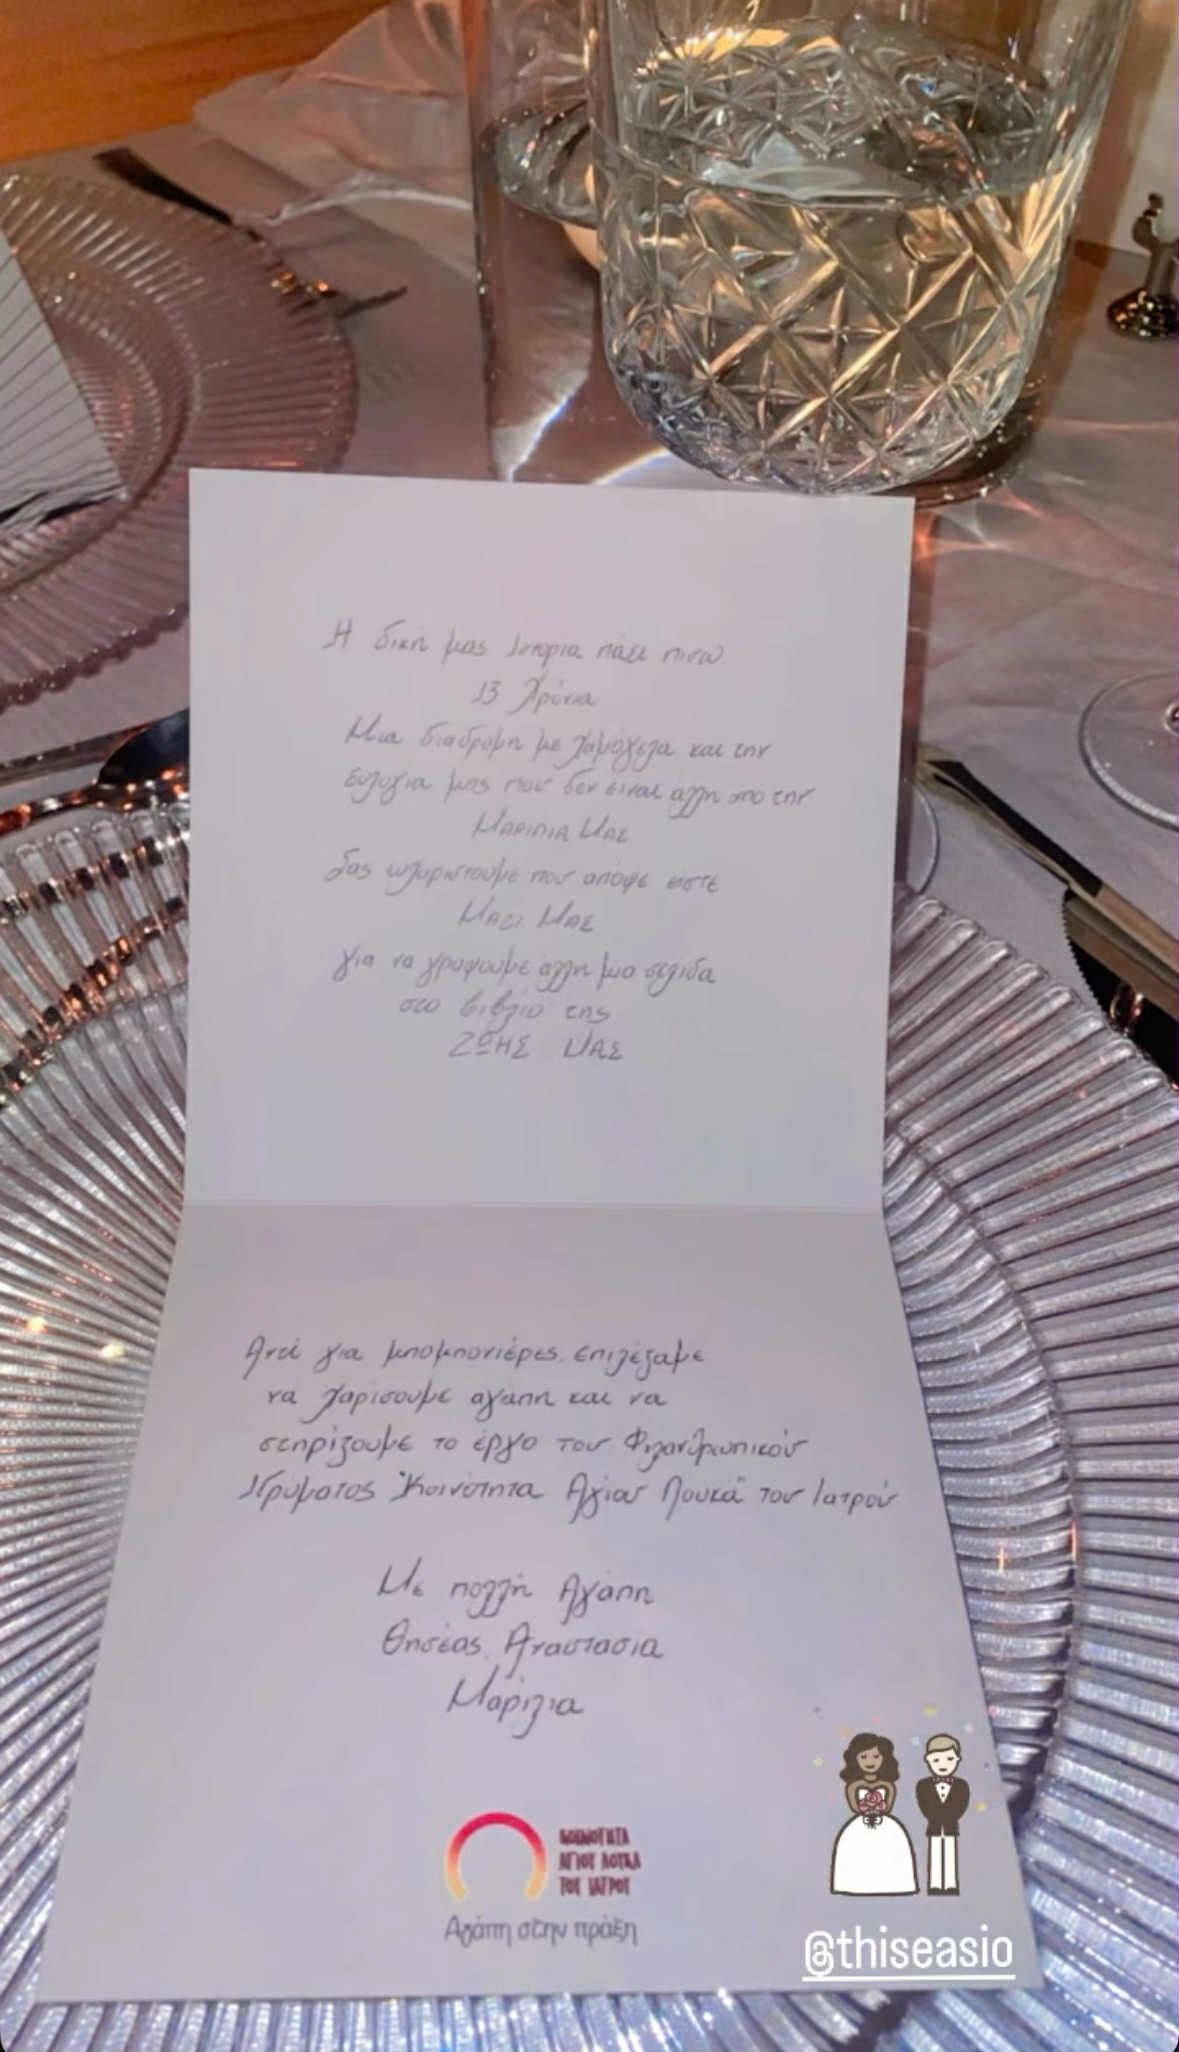 Η δική μας Ιστορία πάει πισω
13 Χρόνια
Μια διαδρομη με Χαμόγελα και την
ευλογια μας που δεν ειναι αλλη απο την
ΜΑΡΙΛΙΑ ΜΑΣ
Σας ευχαριστουμε που απόψε ειστε
ΜΑΖΙ ΜΑΣ
για να γραψουμε αλλη μια σελιδα
στο βιβλιο της
ΖΩΗΣ ΜΑΣ
Αντί για μπομπονιέρες, επιλέξαμε
να χαρίσουμε αγάπη και να
στηρίξουμε το έργο του Φιλανθρωπικού
Ιδρύματος "Κοινότητα Αγίου Λουκά" του Ιατρού
Με πολλή Αγάπη
Θησέας, Αναστασία
Μαρίλια
ΚΟΙΝΟΤΗΤΑ
ΑΓΙΟΥ ΛΟΥΚΑ
ΤΟΥ ΙΑΤΡΟΥ
Αγάπη στην πράξη
@thiseasio